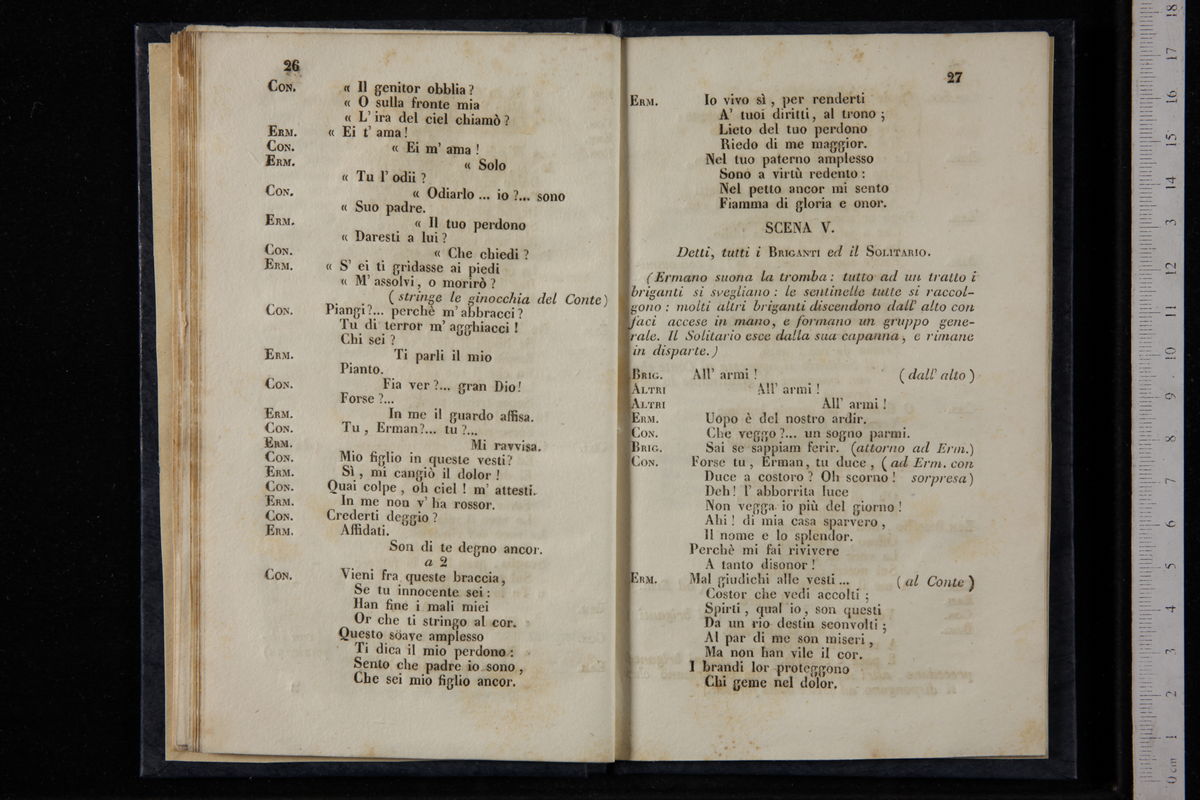 26
CON. « Il genitor obblia?
« O sulla fronte mia
« L' ira del ciel chiamò?
ERM. « Ei t' ama!
CON. « Ei m' ama!
ERM. « Solo
« Tu l' odii?
CON. « Odiarlo ... io ?... sono
« Suo padre.
ERM. « Il tuo perdono
« Daresti a lui?
CON. « Che chiedi?
ERM. « S' ei ti gridasse ai piedi
« M' assolvi, o morirò?
(stringe le ginocchia del Conte)
CON. Piangi?... perchè m' abbracci?
Tu di terror m' agghiacci!
Chi sei?
ERM. Ti parli il mio
Pianto.
CON. Fia ver?... gran Dio!
Forse?...
ERM. In me il guardo affisa.
CON. Tu, Erman?... tu?...
ERM. Mi ravvisa.
CON. Mio figlio in queste vesti?
ERM. Sì, mi cangiò il dolor!
CON. Quai colpe, oh ciel! m' attesti.
ERM. In me non v' ha rossor.
CON. Crederti deggio?
ERM. Affidati.
Son di te degno ancor.
a 2
CON. Vieni fra queste braccia,
Se tu innocente sei:
Han fine i mali miei
Or che ti stringo al cor.
Questo söave amplesso
Ti dica il mio perdono:
Sento che padre io sono,
Che sei mio figlio ancor.
27
ERM. Io vivo sì, per renderti
A' tuoi diritti, al trono;
Lieto del tuo perdono
Riedo di me maggior.
Nel tuo paterno amplesso
Sono a virtù redento:
Nel petto ancor mi sento
Fiamma di gloria e onor.
SCENA V.
Detti, tutti i BRIGANTI ed il SOLITARIO.
(Ermano suona la tromba: tutto ad un tratto i
briganti si svegliano: le sentinelle tutte si raccol-
gono: molti altri briganti discendono dall' alto con
faci accese in mano, e formano un gruppo gene-
rale. Il Solitario esce dalla sua capanna, e rimane
in disparte.)
BRIG. All' armi! (dall' alto)
ALTRI All' armi!
ALTRI All' armi!
ERM. Uopo è del nostro ardir.
CON. Che veggo?... un sogno parmi.
BRIG. Sai se sappiam ferir. (attorno ad Erm.)
CON. Forse tu, Erman, tu duce, (ad Erm. con
Duce a costoro? Oh scorno! sorpresa)
Deh! l' abborrita luce
Non vegga io più del giorno!
Ahi! di mia casa sparvero,
Il nome e lo splendor.
Perchè mi fai rivivere
A tanto disonor!
ERM. Mal giudichi alle vesti ... (al Conte)
Costor che vedi accolti;
Spirti, qual io, son questi
Da un rio destin sconvolti;
Al par di me son miseri,
Ma non han vile il cor.
I brandi lor proteggono
Chi geme nel dolor.